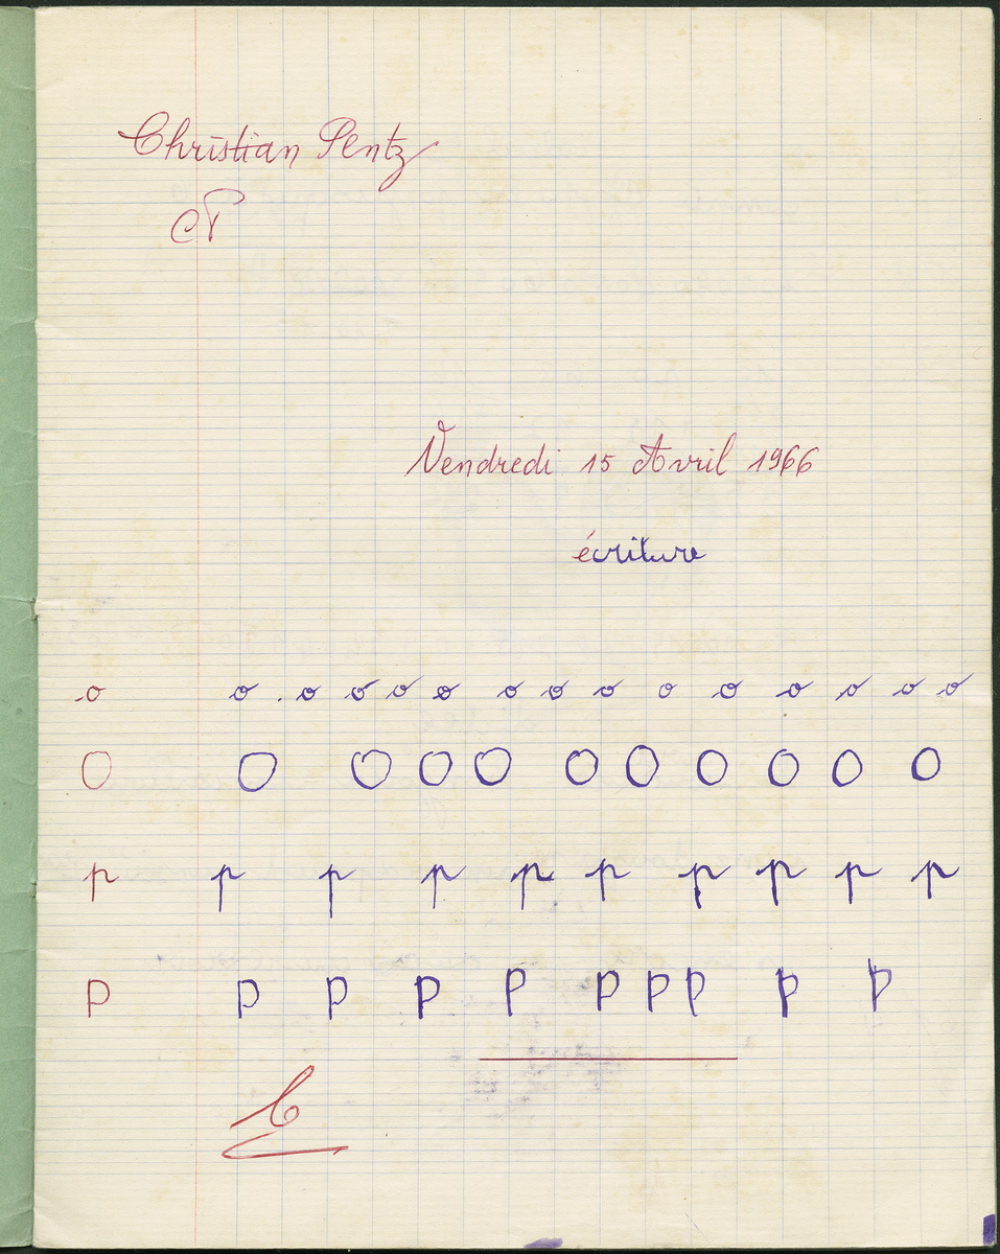 Christian Pentz
CP
Vendredi 15 Avril 1966
écriture
o o o o o o o o o o o o o o o
O O O O O O O O O O O
p p p p p p p p p p
p p p p p p p p p p
B